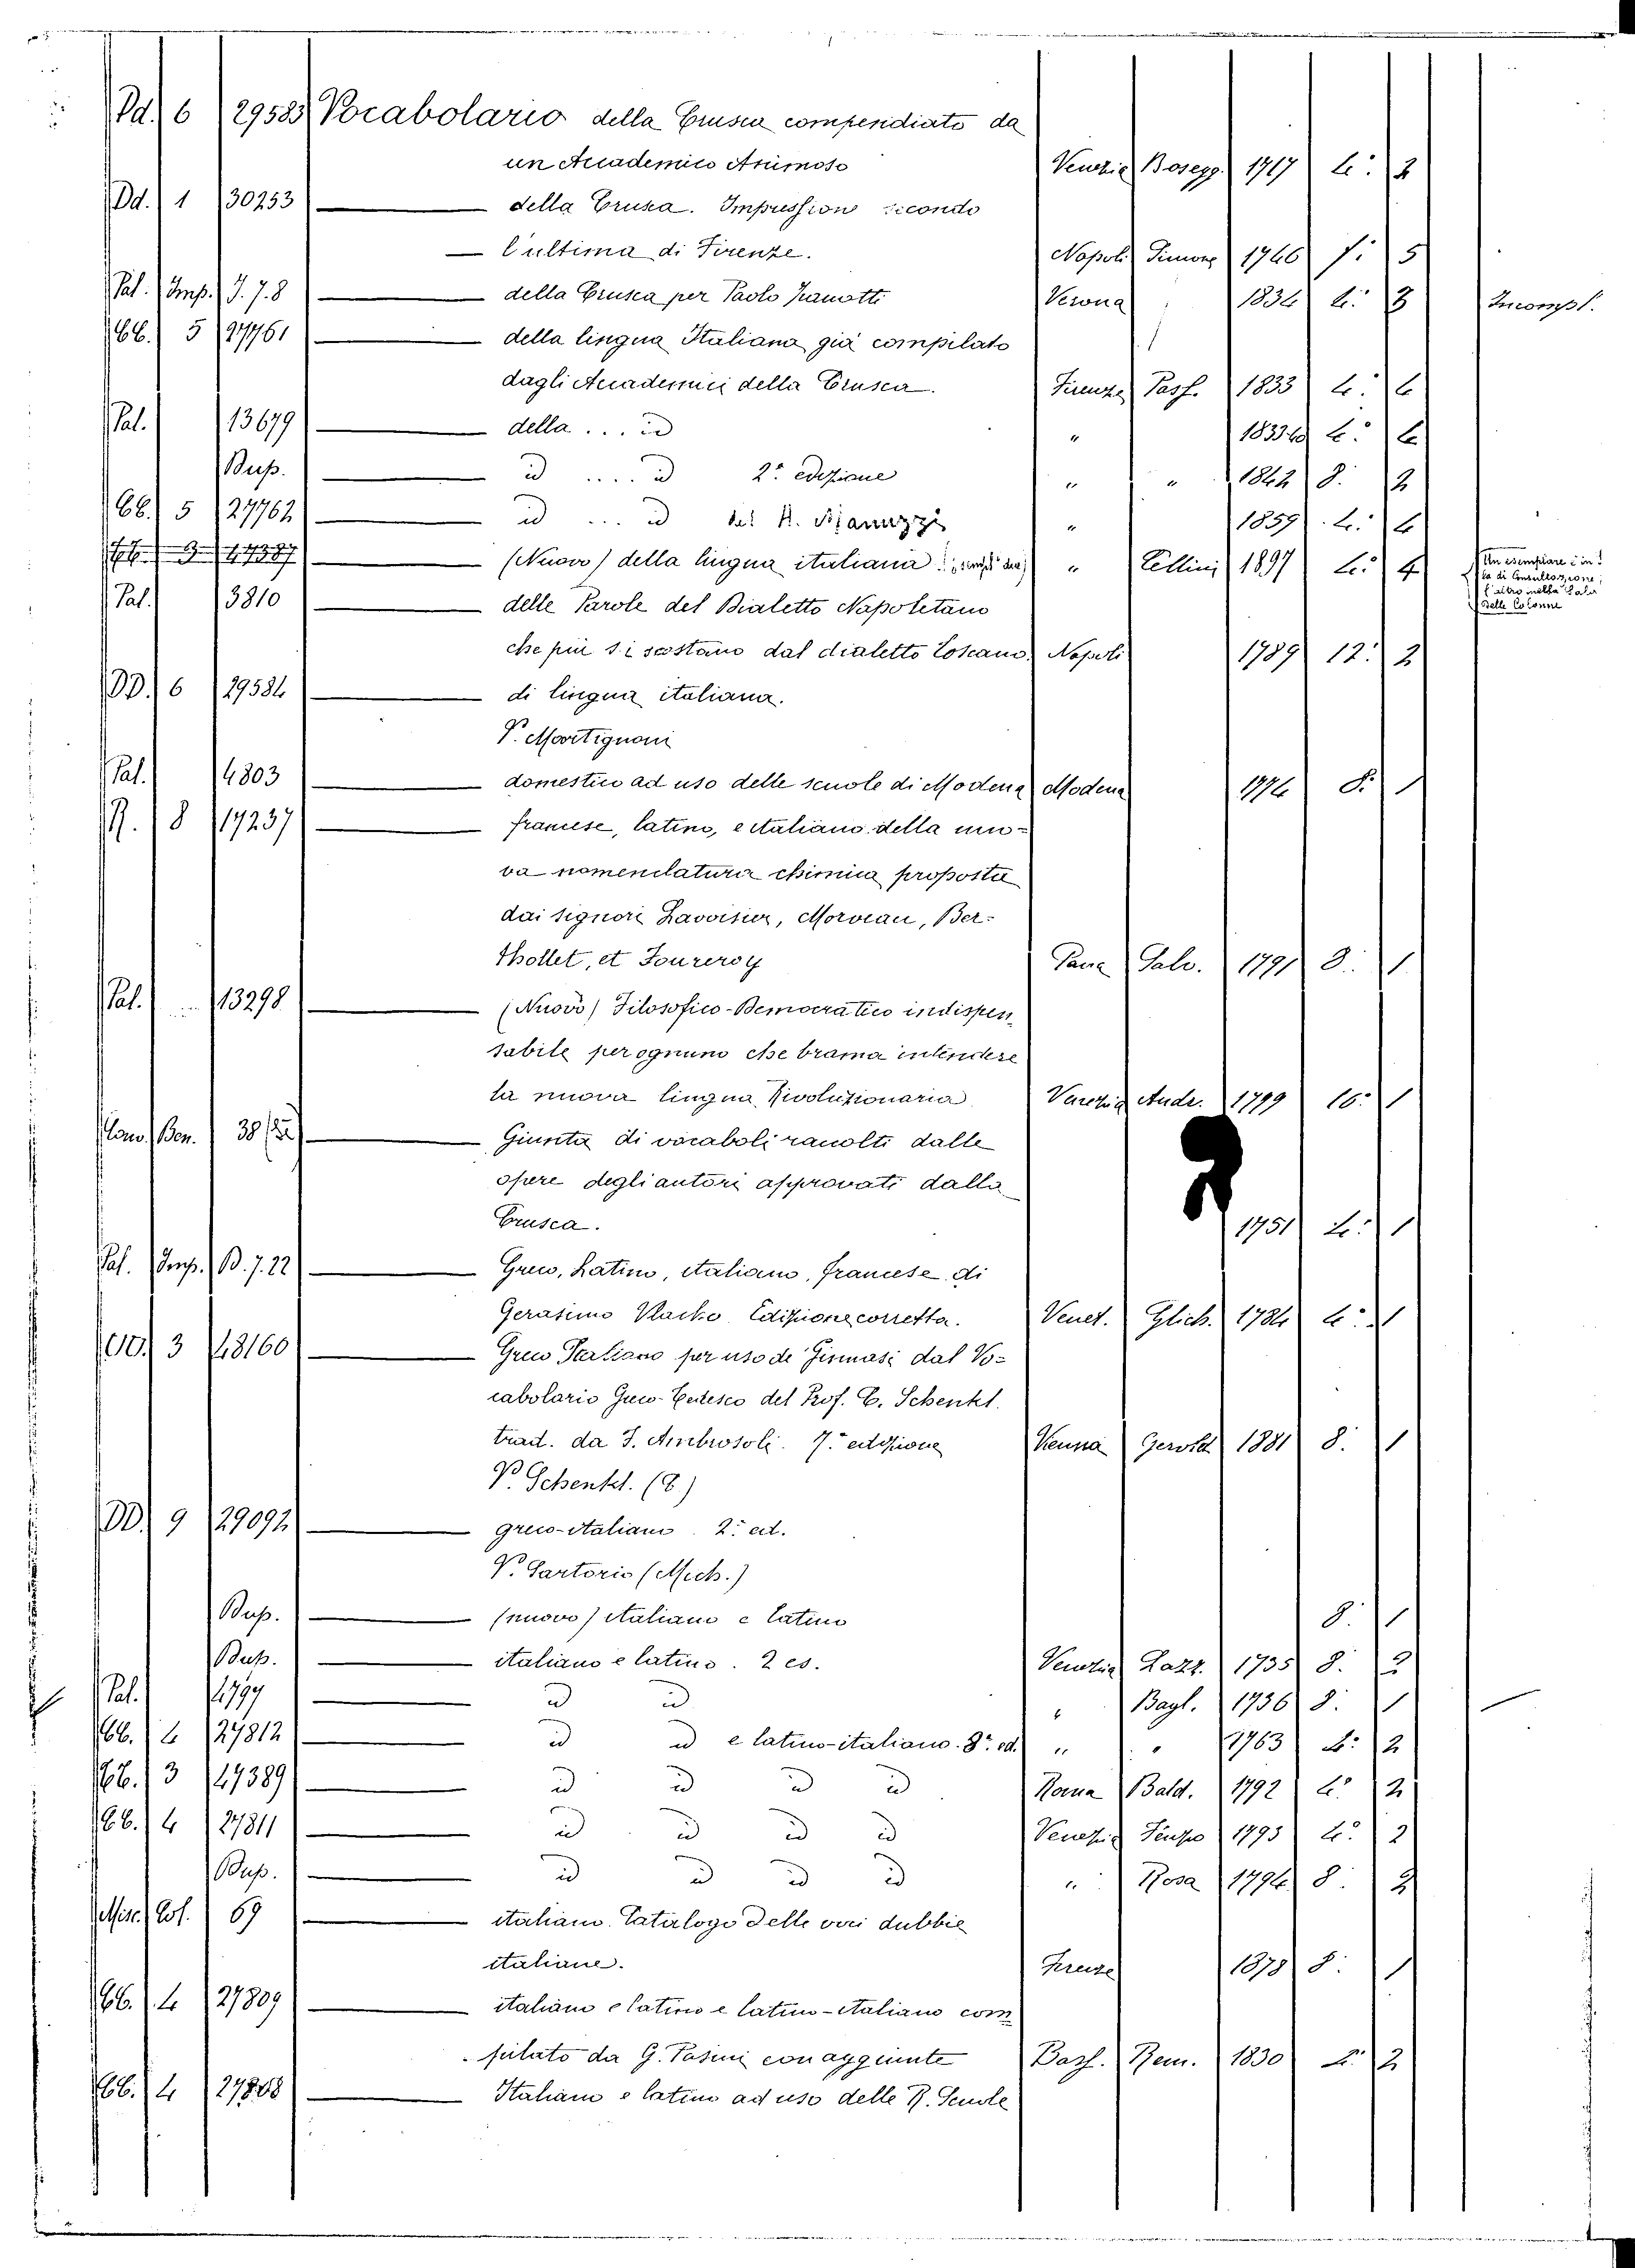 Dd. 6 29583 Vocabolario della Crusca compendiato da
un Accademico Animoso Venezia Bosegg. 1717 4: 2
Dd. 1 30253 — della Crusca. Impressione secondo
— l'ultima di Firenze. Napoli Simone 1746 f: 5
Pal. Imp. J. 7. 8 — della Crusca per Paolo Zanotti Verona 1834 4: 8 Incompl.
bb. 5 27761 — della lingua Italiana già compilato
dagli Accademici della Crusca. Firenze Pass. 1833 4: 6
Pal. 13679 — della ... id " 1833 4: 6
Dup. — id .... id 2ª edizione " " 1842 8: 2
bb. 5 27762 — id ... id del A. Manuzzi " 1859 4: 4
(Nuovo) della lingua italiana " Cellini 1897 4: 4 Un esemplare è in S
la di Consultazione;
l'altro nella Sala
delle Colonne
Pal. 3810 — delle Parole del Dialetto Napoletano
che più si scostano dal dialetto Toscano. Napoli 1789 12: 2
DD. 6 29584 — di lingua italiana.
V. Martignoni
Pal. 4803 — domestico ad uso delle scuole di Modena Modena 8: 1
R. 8 17237 — francese, latino, e italiano della nuo-
va nomenclatura chimica proposta
dai signori Lavoisier, Morveau, Ber-
thollet, et Fourcroy Galv. 1791 8: 1
Pal. 13298 — (Nuovo) Filosofico-Democratico indispen-
sabile per ognuno che brama intendere
la nuova lingua Rivoluzionaria Venezia Andr. 1799 16: 1
Ben. 38 — Giunta di vocaboli raccolti dalle
opere degli autori approvati dalla
Crusca. 1751 4: 1
Pal. Imp. B. 7. 22 — Greco, Latino, italiano, francese di
Gerasimo Vlacho Edizione corretta. Venet. Glich. 1784 4: 1
DD. 3 48160 — Greco Italiano per uso de' Ginnasi dal Vo-
cabolario Greco-Tedesco del Prof. C. Schenkl.
trad. da F. Ambrosoli. 7.ª edizione Vienna Gerold 1881 8: 1
V. Schenkl. (C)
DD. 9 29092 — greco-italiano. 2ª ed.
V. Sartorio (Mich.)
Dup. — (nuovo) italiano e latino 8: 1
Dup. — italiano e latino. 2 es. Venezia Lazz. 1735 8: 2
Pal. — id id " Bagl. 1736 8: 1
bb. 4 27812 — id id e latino-italiano. 8ª ed. " " 1763 4: 2
bb. 3 47389 — id id id id Roma Bald. 1792 4: 2
bb. 4 27811 — id id id id Venezia Tenso 1793 4: 2
Dup. — id id id id " Rosa 1794 8: 2
Misc. Col. 69 — italiano. Catalogo delle voci dubbie
italiane. Firenze 1878 8: 1
bb. 4 27809 — italiano e latino e latino-italiano com
pilato da G. Pasini con aggiunte Bass. Rem. 1830 4: 2
bb. 4 27808 — Italiano e latino ad uso delle R. Scuole